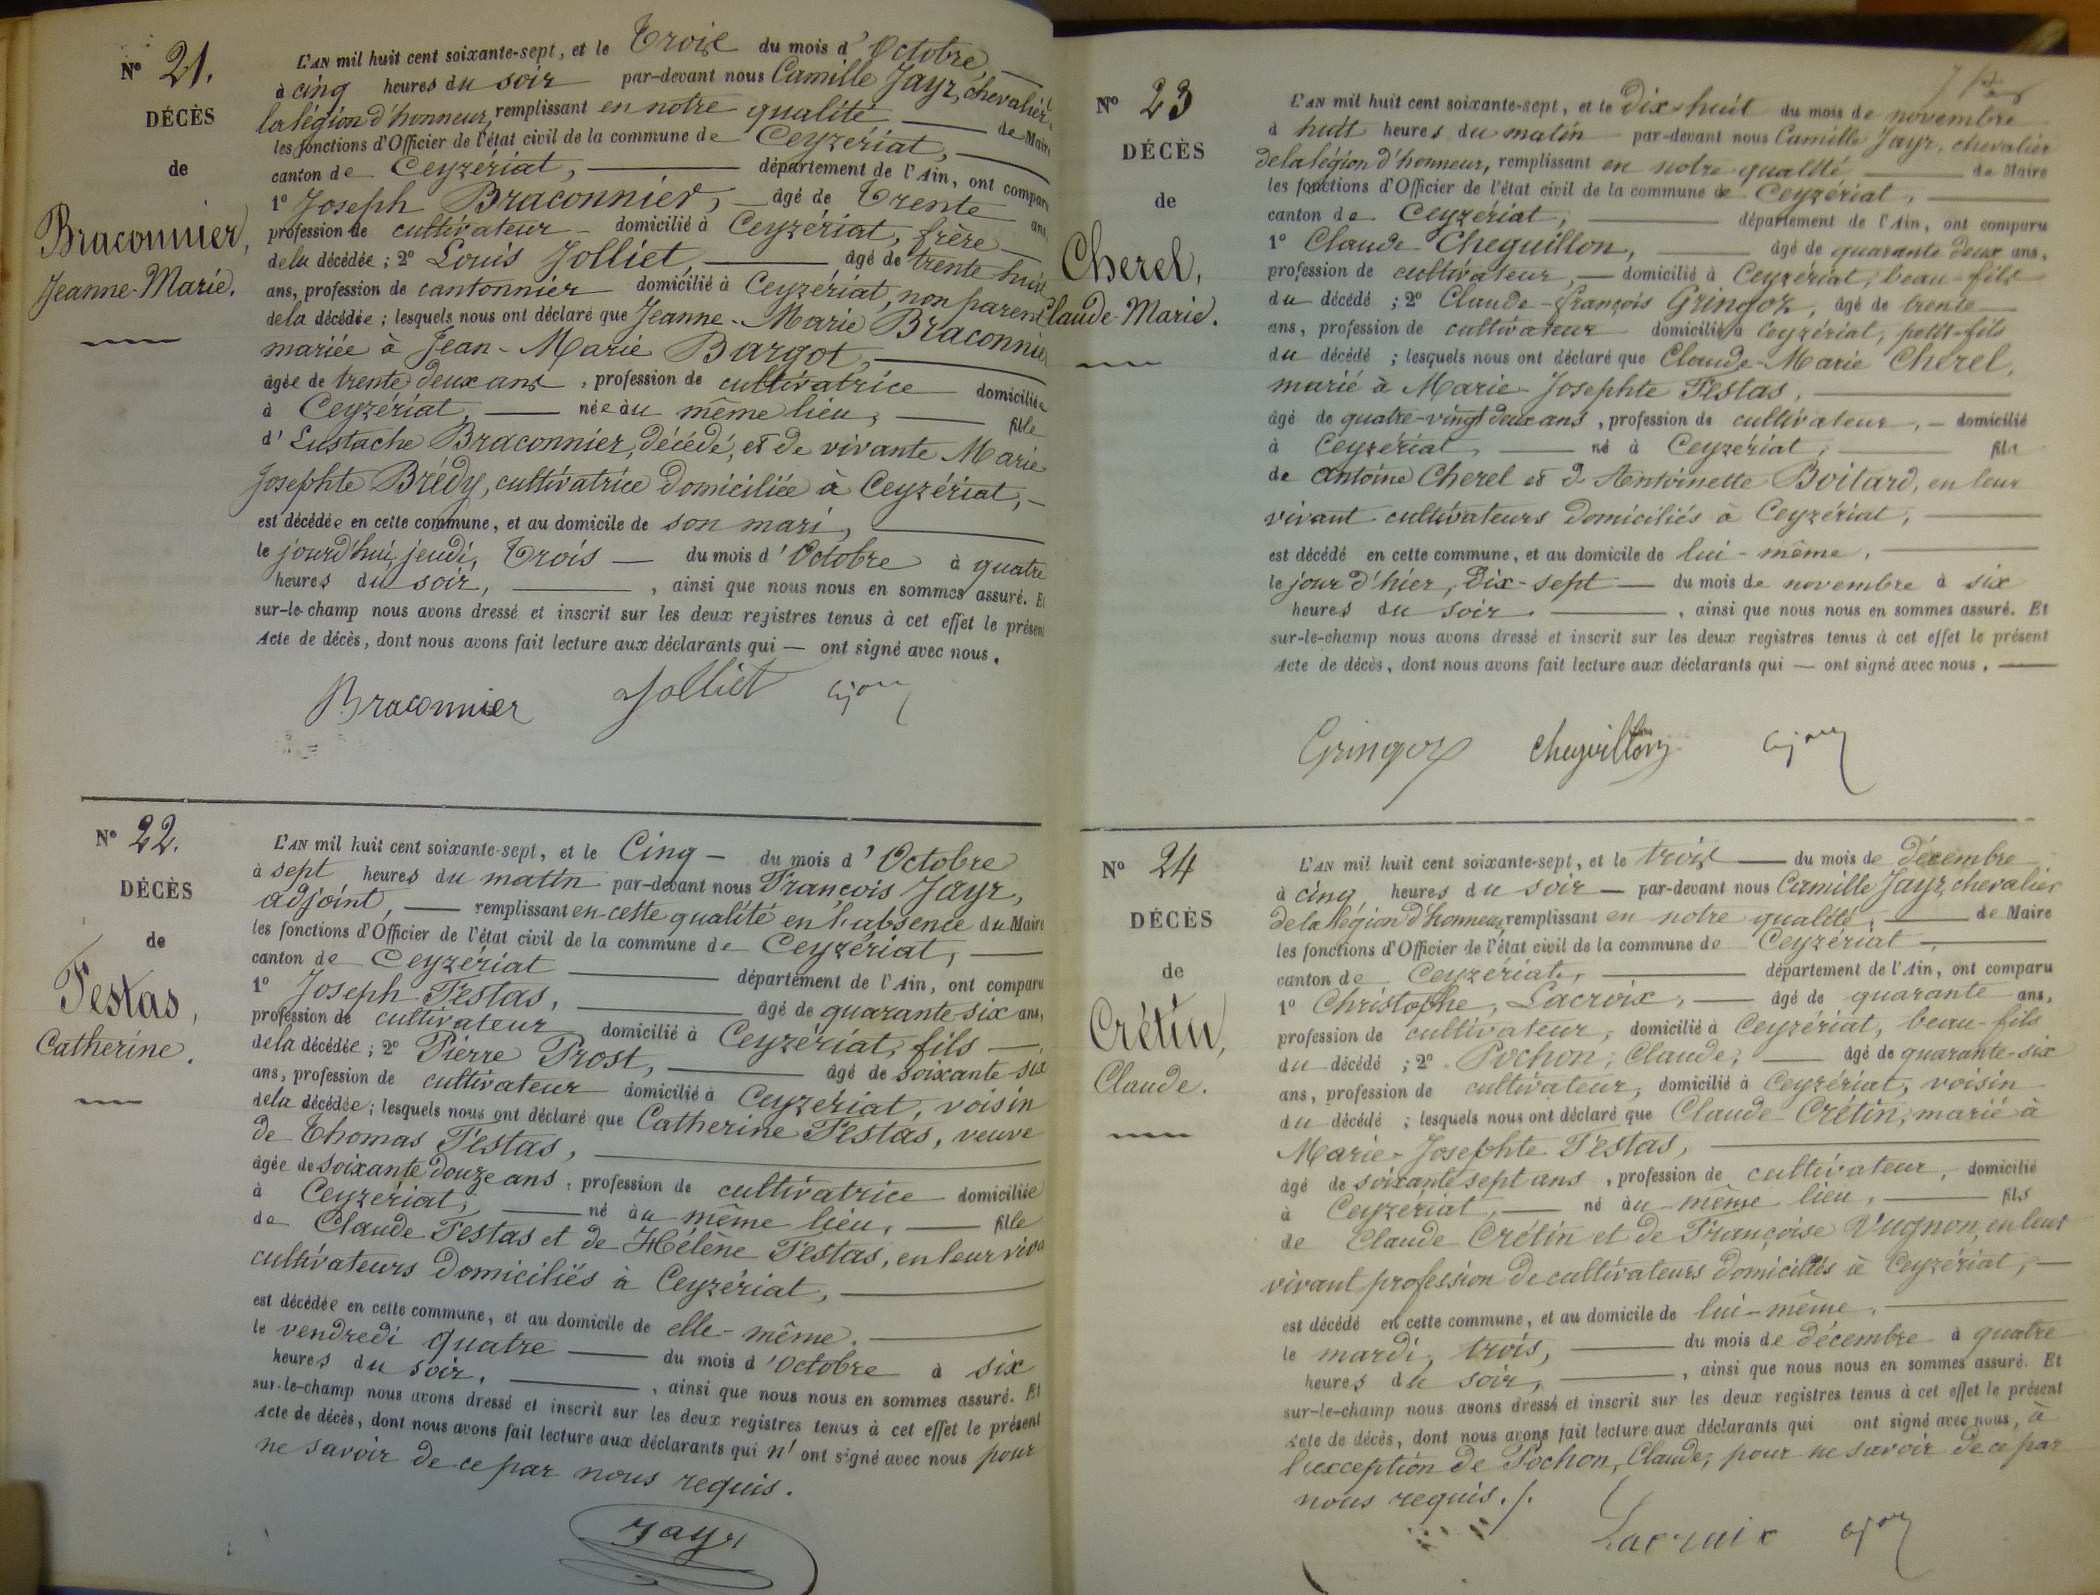 N° 21.
DÉCÈS
de
Braconnier,
Jeanne-Marie.
L'AN mil huit cent soixante-sept, et le Trois du mois d'Octobre
à cinq heures du soir par-devant nous Camille Jayr, chevalier
la légion d'honneur, remplissant en notre qualité de Maire
les fonctions d'Officier de l'état civil de la commune de Ceyzériat,
canton de Ceyzériat, département de l'Ain, ont comparu
1° Joseph Braconnier, âgé de Trente ans,
profession de cultivateur domicilié à Ceyzériat, frère
de la décédée ; 2° Louis Jolliet, âgé de trente huit
ans, profession de cantonnier domicilié à Ceyzériat, non parent
de la décédée ; lesquels nous ont déclaré que Jeanne-Marie Braconnier
mariée à Jean-Marie Bargot,
âgée de trente deux ans, profession de cultivatrice domiciliée
à Ceyzériat, née au même lieu, fille
d'Eustache Braconnier, décédé, et de vivante Marie
Josephte Brédy, cultivatrice domiciliée à Ceyzériat,
est décédée en cette commune, et au domicile de son mari,
le jourd'hui jeudi, Trois du mois d'Octobre à quatre
heures du soir, , ainsi que nous nous en sommes assuré. Et
sur-le-champ nous avons dressé et inscrit sur les deux registres tenus à cet effet le présent
Acte de décès, dont nous avons fait lecture aux déclarants qui — ont signé avec nous.
Braconnier Jolliet
N° 22.
DÉCÈS
de
Testas,
Catherine.
L'AN mil huit cent soixante-sept, et le Cinq du mois d'Octobre
à sept heures du matin par-devant nous François Jayr,
adjoint, remplissant en cette qualité en l'absence du Maire
les fonctions d'Officier de l'état civil de la commune de Ceyzériat,
canton de Ceyzériat département de l'Ain, ont comparu
1° Joseph Testas, âgé de quarante-six ans,
profession de cultivateur domicilié à Ceyzériat, fils
de la décédée ; 2° Pierre Prost, âgé de soixante-six
ans, profession de cultivateur domicilié à Ceyzériat, voisin
de la décédée ; lesquels nous ont déclaré que Catherine Testas, veuve
de Thomas Testas,
âgée de soixante douze ans, profession de cultivatrice domiciliée
à Ceyzériat, né au même lieu, fille
de Claude Testas et de Hélène Testas, en leur viva
cultivateurs domiciliés à Ceyzériat,
est décédée en cette commune, et au domicile de elle-même.
le vendredi quatre du mois d'Octobre à six
heures du soir, , ainsi que nous nous en sommes assuré. Et
sur-le-champ nous avons dressé et inscrit sur les deux registres tenus à cet effet le présent
Acte de décès, dont nous avons fait lecture aux déclarants qui n'ont signé avec nous pour
ne savoir de ce par nous requis.
Jayr
N° 23
DÉCÈS
de
Cherel,
Claude-Marie.
L'AN mil huit cent soixante-sept, et le Dix-huit du mois de novembre
à huit heures du matin par-devant nous Camille Jayr, chevalier
de la légion d'honneur, remplissant en notre qualité de Maire
les fonctions d'Officier de l'état civil de la commune de Ceyzériat,
canton de Ceyzériat, département de l'Ain, ont comparu
1° Claude Cheguillon, âgé de quarante deux ans,
profession de cultivateur, domicilié à Ceyzériat, beau-fils
du décédé ; 2° Claude-François Gringoz, âgé de trente
ans, profession de cultivateur domicilié à Ceyzériat, petit-fils
du décédé ; lesquels nous ont déclaré que Claude-Marie Cherel,
marié à Marie-Josephte Testas,
âgé de quatre-vingt deux ans, profession de cultivateur, domicilié
à Ceyzériat, né à Ceyzériat, fils
de Antoine Cherel et d'Antoinette Boitard, en leur
vivant cultivateurs domiciliés à Ceyzériat,
est décédé en cette commune, et au domicile de lui-même,
le jour d'hier, dix-sept du mois de novembre à six
heures du soir. , ainsi que nous nous en sommes assuré. Et
sur-le-champ nous avons dressé et inscrit sur les deux registres tenus à cet effet le présent
Acte de décès, dont nous avons fait lecture aux déclarants qui — ont signé avec nous.
Gringoz Cheguillon
N° 24
DÉCÈS
de
Crétin,
Claude.
L'AN mil huit cent soixante-sept, et le trois du mois de décembre
à cinq heures du soir par-devant nous Camille Jayr, chevalier
de la légion d'honneur, remplissant en notre qualité, de Maire
les fonctions d'Officier de l'état civil de la commune de Ceyzériat
canton de Ceyzériat, département de l'Ain, ont comparu
1° Christophe, Lacroix, âgé de quarante ans,
profession de cultivateur, domicilié à Ceyzériat, beau-fils
du décédé ; 2° Pochon, Claude, âgé de quarante-six
ans, profession de cultivateur, domicilié à Ceyzériat, voisin
du décédé ; lesquels nous ont déclaré que Claude Crétin, marié à
Marie-Josephte Testas,
âgé de soixante sept ans, profession de cultivateur, domicilié
à Ceyzériat, né au même lieu, fils
de Claude Crétin et de Françoise Vugnon, en leur
vivant profession de cultivateurs domiciliés à Ceyzériat,
est décédé en cette commune, et au domicile de lui-même.
le mardi, trois, du mois de décembre à quatre
heures du soir, , ainsi que nous nous en sommes assuré. Et
sur-le-champ nous avons dressé et inscrit sur les deux registres tenus à cet effet le présent
Acte de décès, dont nous avons fait lecture aux déclarants qui ont signé avec nous, à
l'exception de Pochon, Claude, pour ne savoir de ce par
nous requis./.
Lacroix